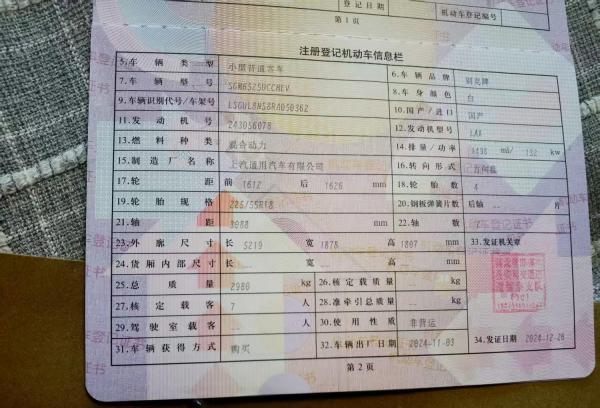 登记日期
机动车登记编号
第1页
注册登记机动车信息栏
5.车辆类型 小型普通客车 6.车辆品牌 别克牌
7.车辆型号 SGM6525UCCHEV 8.车身颜色 白
9.车辆识别代号/车架号 LSGUL8NS8RA050362 10.国产/进口 国产
11.发动机号 243056078 12.发动机型号 LAX
13.燃料种类 混合动力 14.排量/功率 ml/ kw
15.制造厂名称 上汽通用汽车有限公司 16.转向形式 方向盘
17.轮距 前 1612 后 1626 mm 18.轮胎数 4
19.轮胎规格 225/55R18 20.钢板弹簧片数 后轴 片
21.轴距 3088 mm 22.轴数 2
23.外廓尺寸 长 5219 宽 1878 高 1807 mm 33.发证机关章
24.货厢内部尺寸 长 宽 高 mm
25.总质量 2980 kg 26.核定载质量 kg
27.核定载客 7 人 28.准牵引总质量 kg
29.驾驶室载客 人 30.使用性质 非营运
31.车辆获得方式 购买 32.车辆出厂日期 2024-11-03 34.发证日期 2024-12-26
第2页